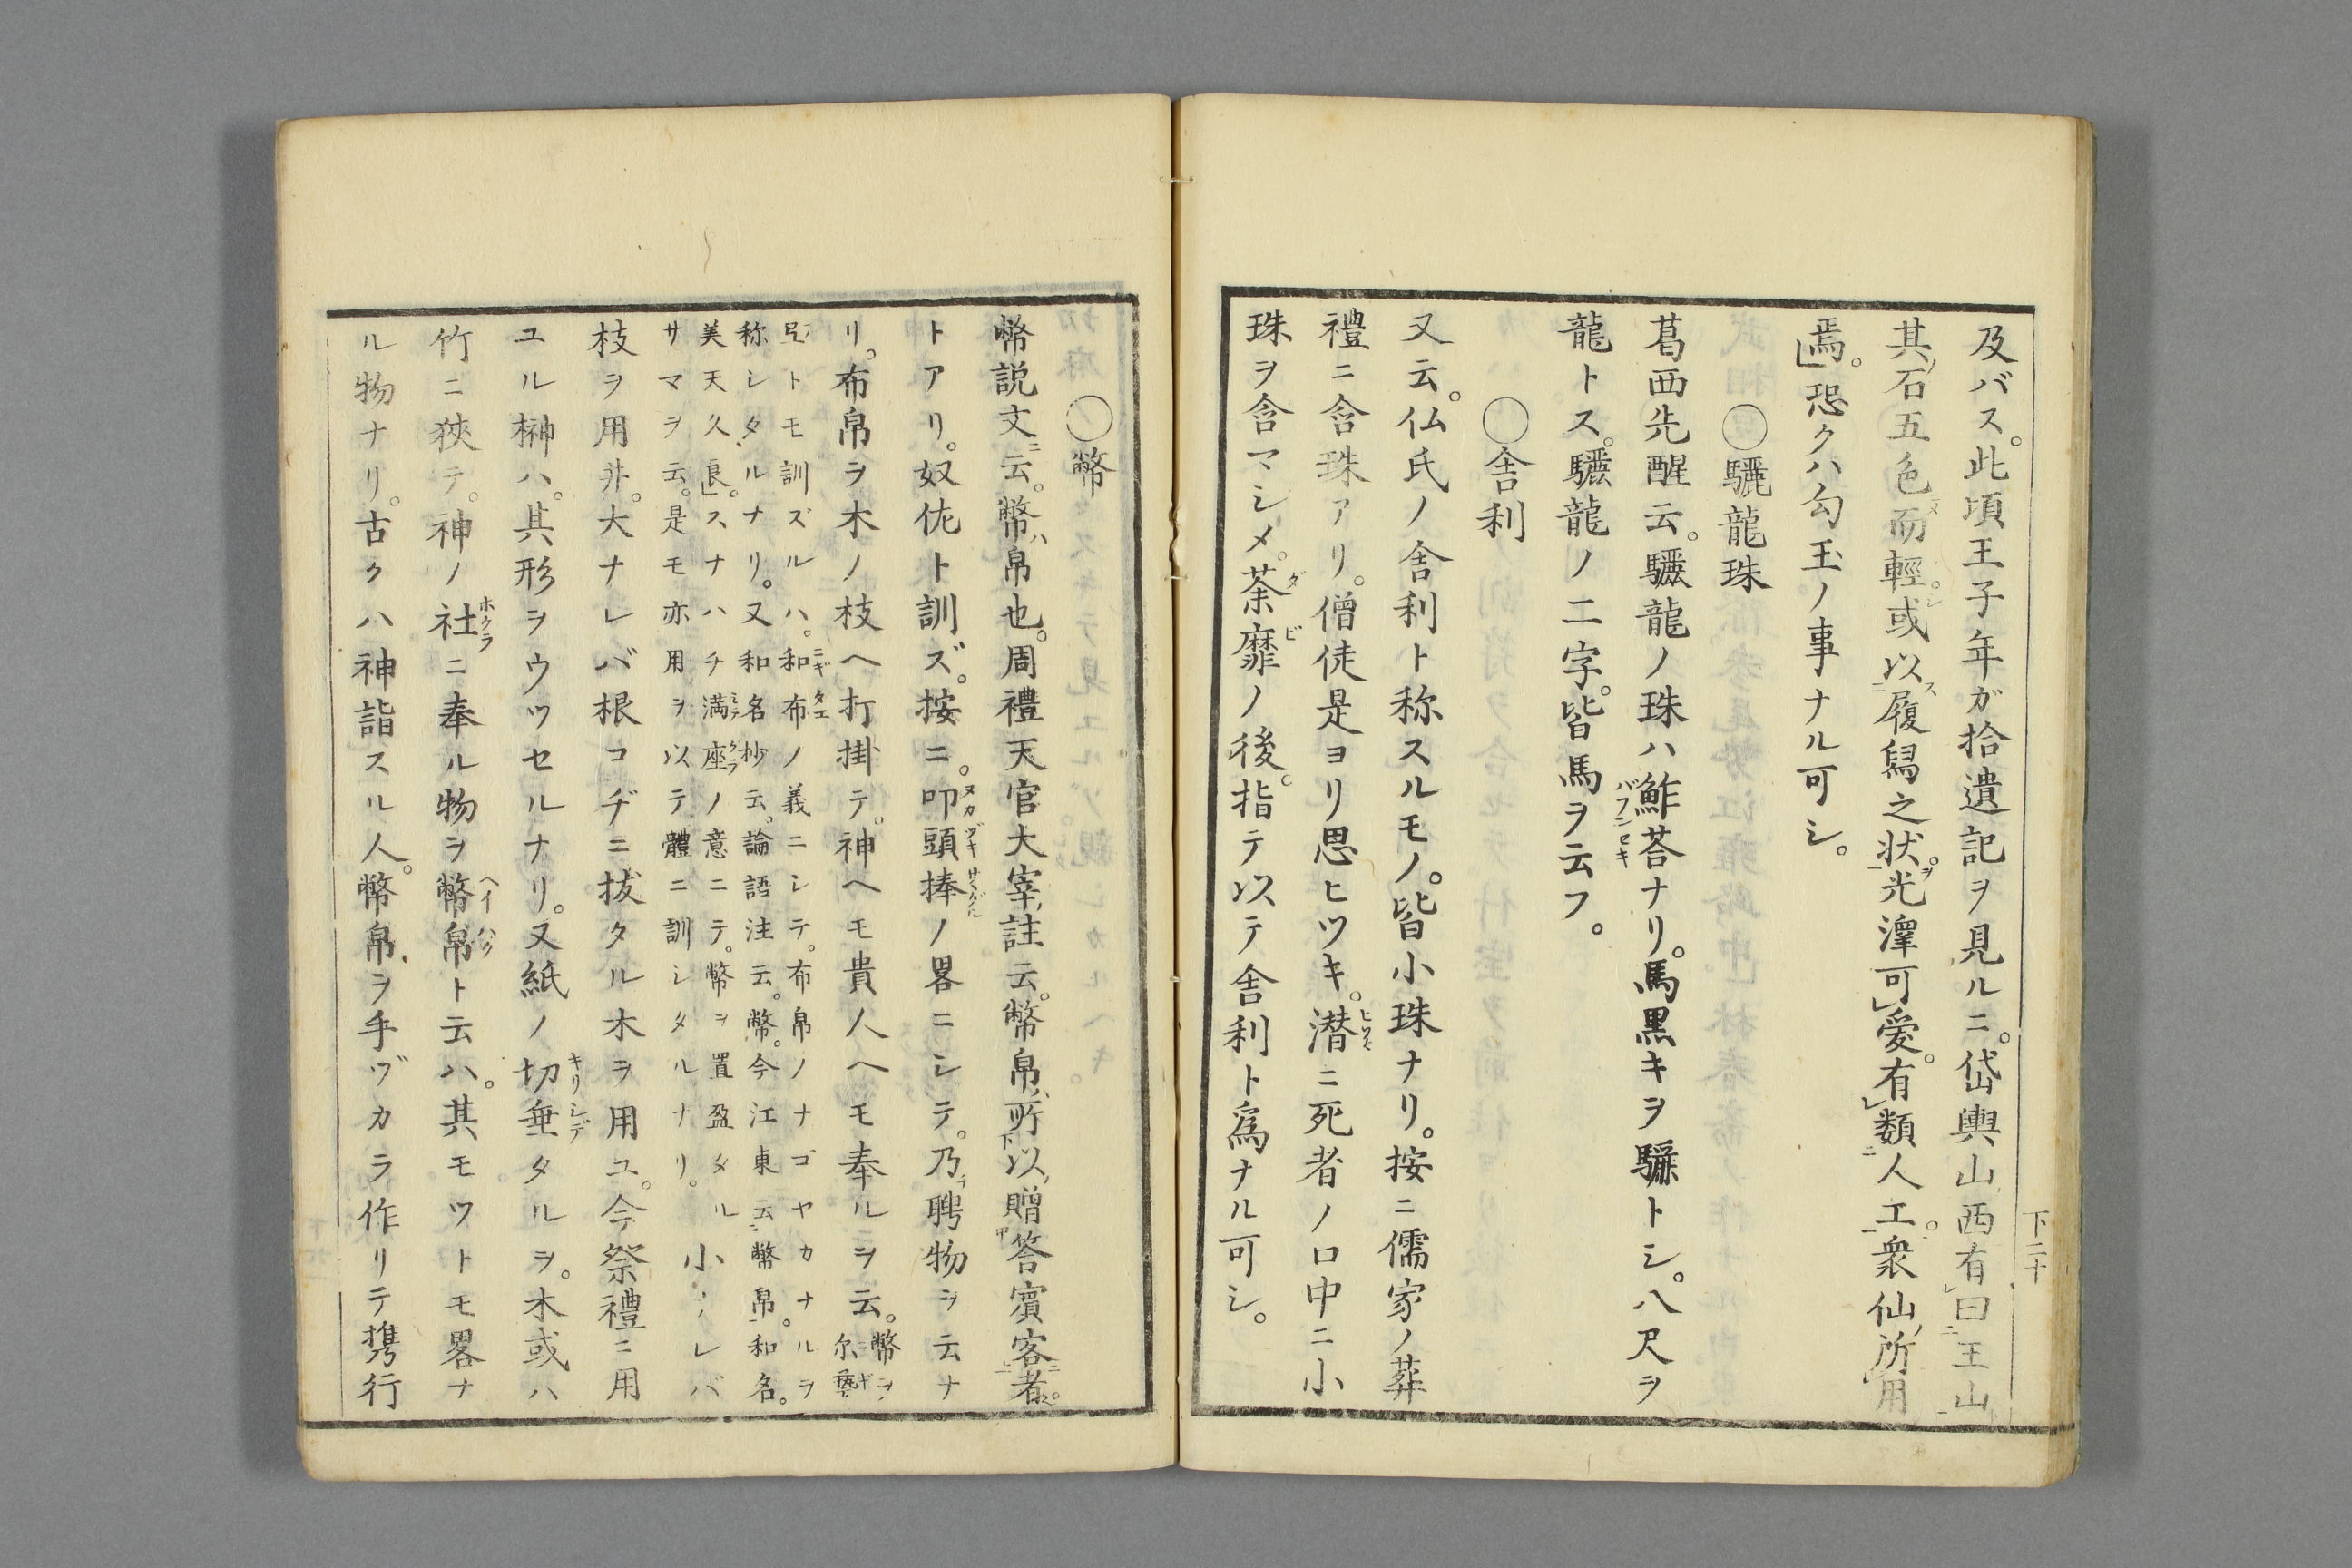 及バス。此頃王子年ガ拾遺記ヲ見ルニ。岱輿山西有曰王山
其石五色而輕。或以履舄之状。光澤可愛。有類人工。衆仙所用
焉。恐クハ勾玉ノ事ナル可シ。
〇驪龍珠
葛西先醒云。驪龍ノ珠ハ鮓荅ナリ。馬黒キヲ驪トシ。八尺ヲ
龍トス。驪龍ノ二字。皆馬ヲ云フ。
〇舎利
又云。仏氏ノ舎利ト称スルモノ。皆小珠ナリ。按ニ儒家ノ葬
禮ニ含珠アリ。僧徒是ヨリ思ヒツキ。潜ニ死者ノ口中ニ小
珠ヲ含マシメ。荼靡ノ後。指テ以テ舎利ト爲ナル可シ。
下二十
〇幣
幣説文云。幣帛也。周禮天官大宰註云。幣帛所以贈答賓客者。
トアリ。奴佐ト訓ズ。按ニ。叩頭捧ノ畧ニシテ。乃聘物ヲ云ナ
リ。布帛ヲ木ノ枝ヘ打掛テ。神ヘモ貴人ヘモ奉ルヲ云。幣ヲ
尓藝
トモ訓ズルハ。和布ノ義ニシテ。布帛ノナゴヤカナルヲ
称シタルナリ。又和名抄云。論語注云。幣。今江東云幣帛。和名。
美天久良。スナハチ満座ノ意ニテ。幣ヲ置盈タル
サマヲ云。是モ亦用ヲ以テ體ニ訓シタルナリ。
小ナレバ
枝ヲ用井。大ナレバ根コヂニ拔タル木ヲ用ユ。今祭禮ニ用
ユル榊ハ。其形ヲウツセルナリ。又紙ノ切垂タルヲ。木或ハ
竹ニ狹テ。神ノ社ニ奉ル物ヲ幣帛ト云ハ。其モツトモ畧ナ
ル物ナリ。古クハ神詣スル人。幣帛ヲ手ヅカラ作リテ携行